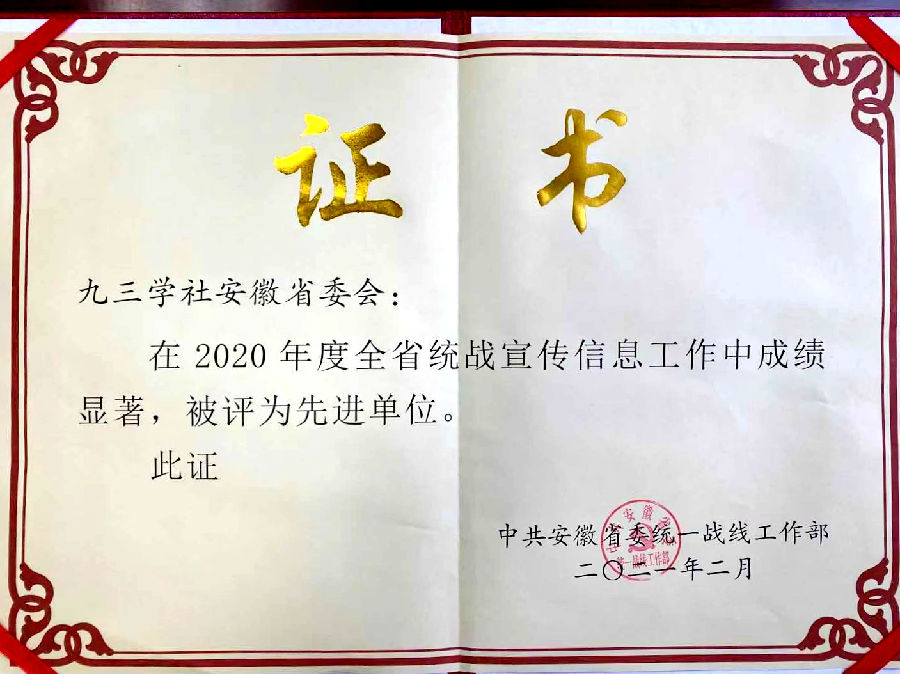 证 书
九三学社安徽省委会：
在 2020 年度全省统战宣传信息工作中成绩
显著，被评为先进单位。
此证
中共安徽省委统一战线工作部
二〇二一年二月